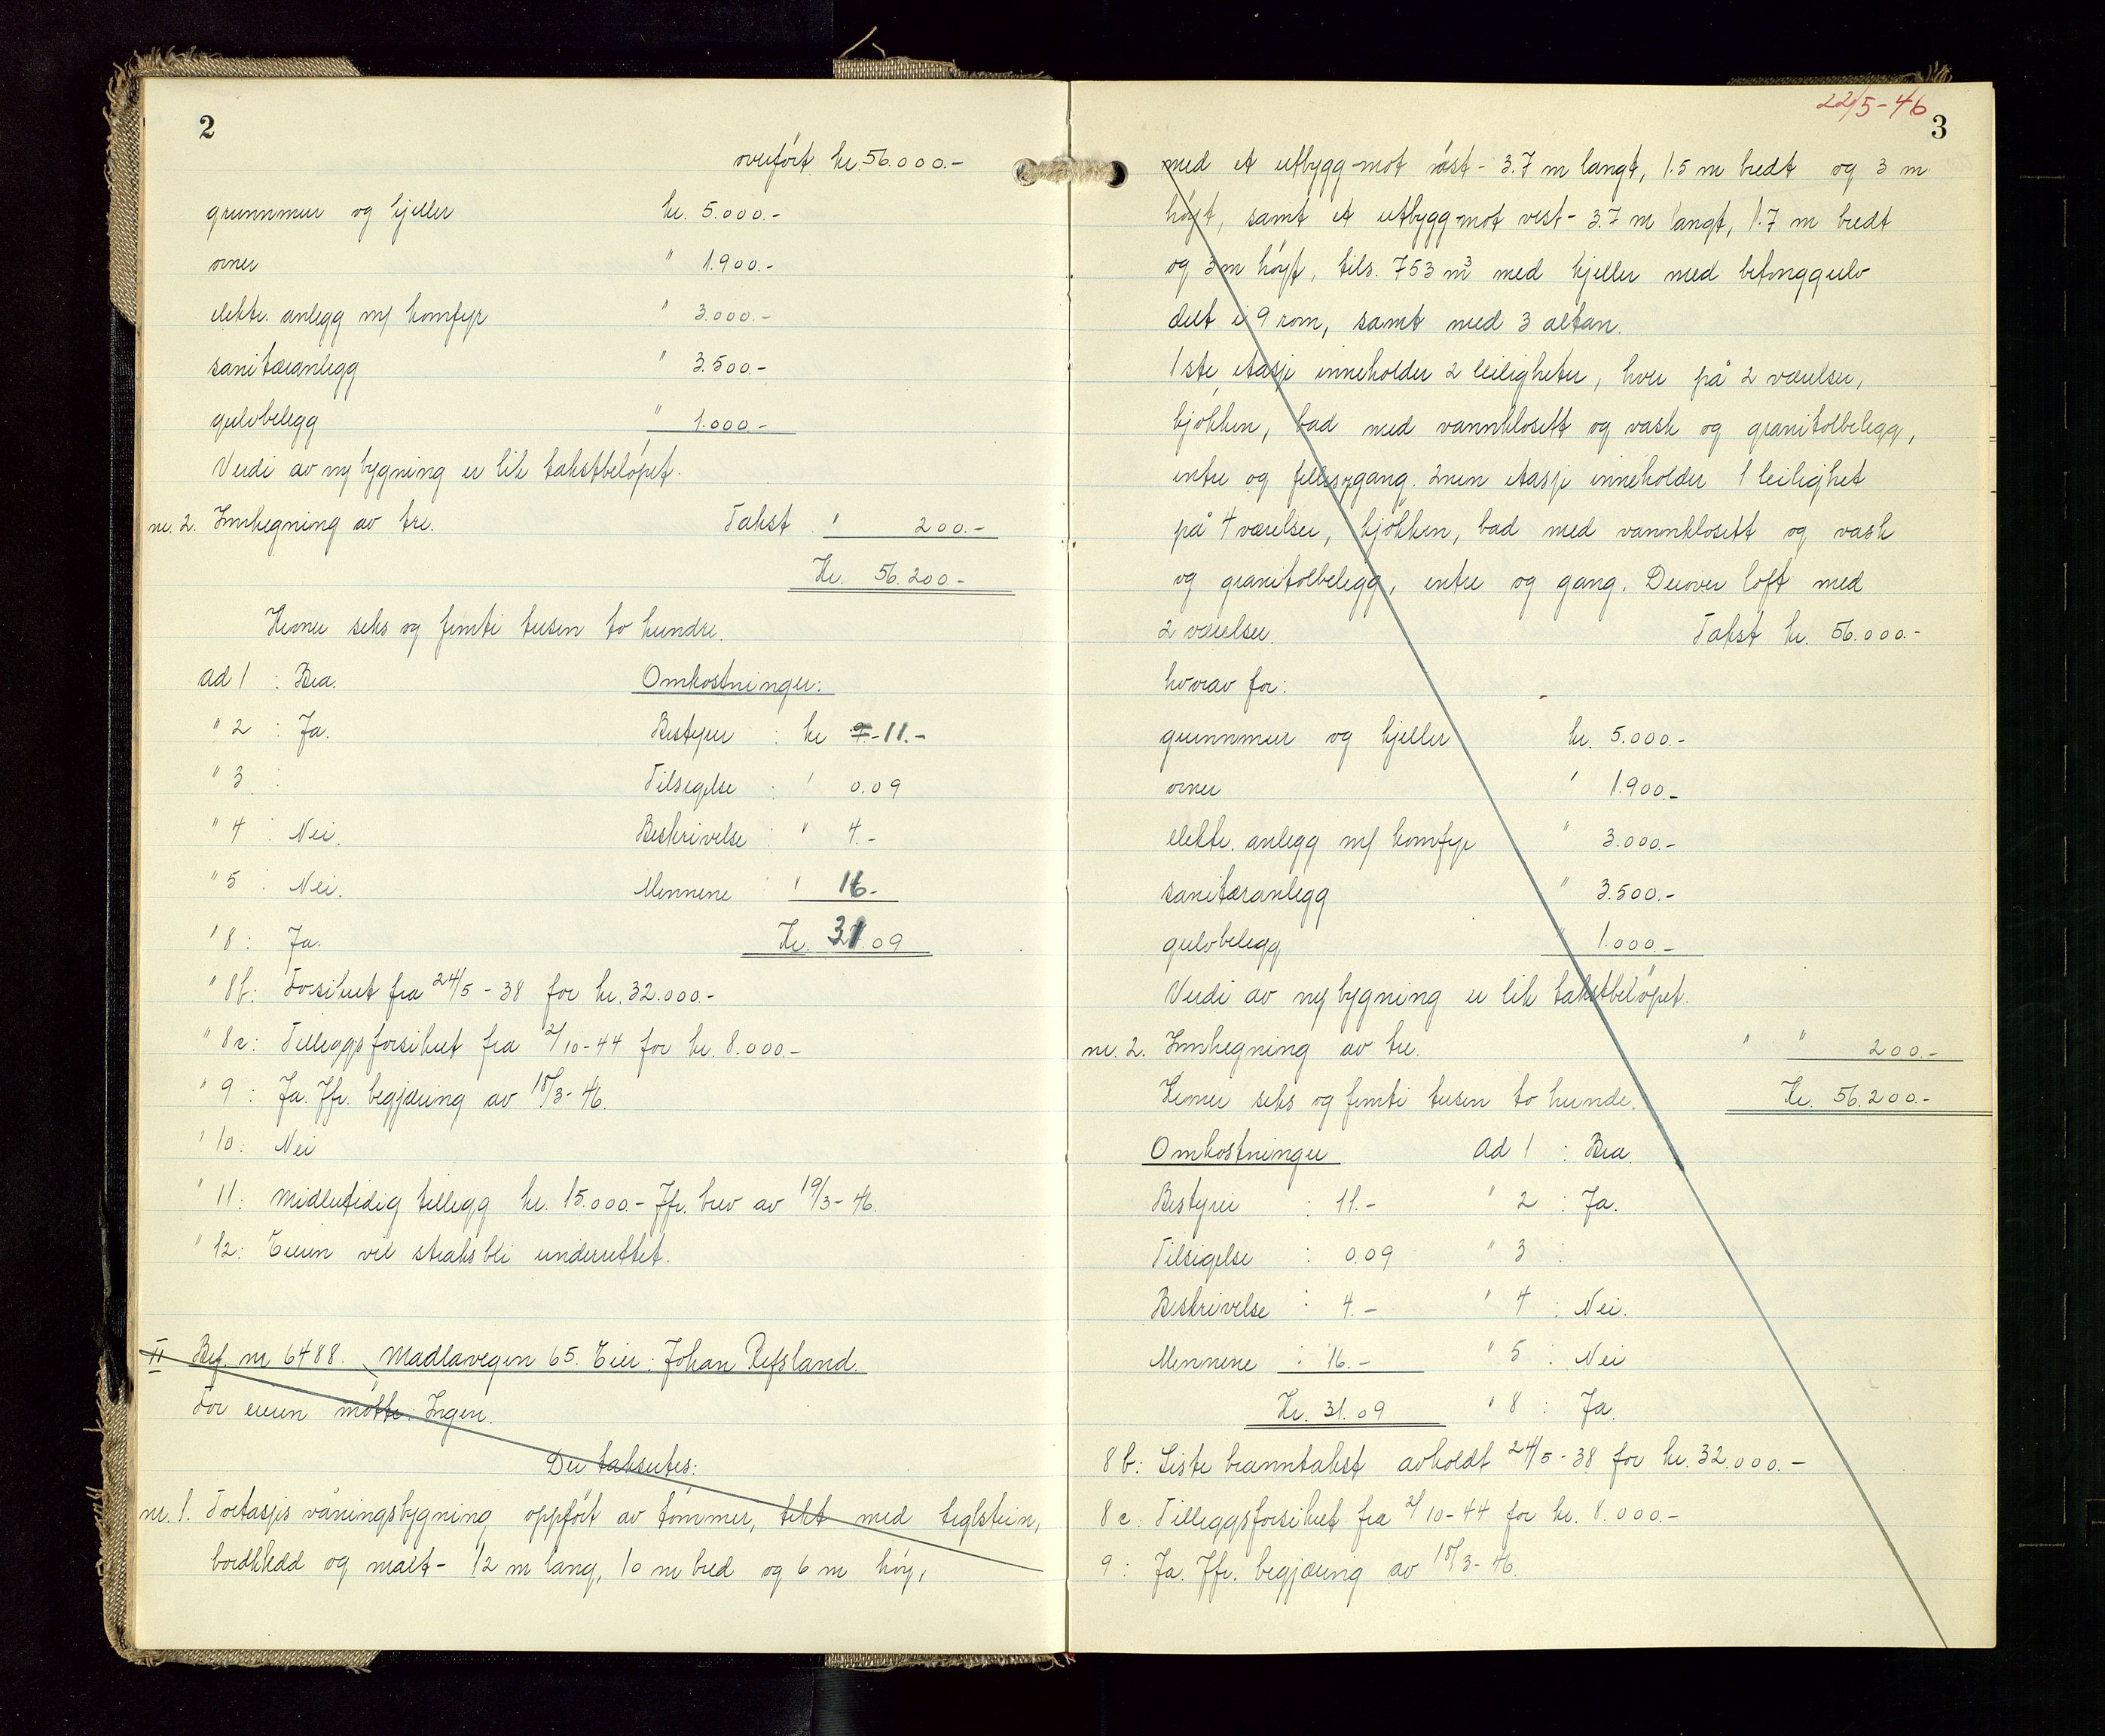 2
overført kr. 56.000.-
grunnmur og kjeller kr. 5.000.-
ovner " 1.900.-
elektr. anlegg m/ komfyr " 3.000.-
sanitæranlegg " 3.500.-
gulvbelegg " 1.000.-
Verdi av ny bygning er lik takstbeløpet.
nr. 2. Innhegning av tre. Takst " 200.-
Kr. 56.200.-
Kroner seks og femti tusen to hundre.
ad 1 : Bra. Omkostninger:
" 2 : Ja. Bestyrer : kr 11.-
" 3 : Tilsigelse : " 0.09
" 4 : Nei. Beskrivelse : " 4.-
" 5 : Nei. Mennene : " 16.-
" 8 : Ja. Kr. 31.09
" 8b: Forsikret fra 24/5-38 for kr. 32.000.-
" 8c: Tilleggsforsikret fra 2/10-44 for kr. 8.000.-
" 9 : Ja. Jfr. begjæring av 18/3-46.
" 10: Nei
" 11: Midlertidig tillegg kr. 15.000.- Jfr. brev av 19/3-46.
" 12: Eieren vil straks bli underrettet.
II Bef. nr 6488. Madlavegen 65. Eier: Johan Refsland.
For eieren møtte: Ingen.
Der takseres:
nr. 1. Toetasjes våningsbygning oppført av tømmer, tekt med teglstein,
bordkledd og malt - 12 m lang, 10 m bred og 6 m høy,
22/5-46
3
med et utbygg mot øst - 3.7 m langt, 1.5 m bredt og 3 m
høyt, samt et utbygg mot vest - 3.7 m langt, 1.7 m bredt
og 3 m høyt, tils. 753 m³ med kjeller med betonggulv
delt i 9 rom, samt med 3 altan.
1ste etasje inneholder 2 leiligheter, hver på 2 værelser,
kjøkken, bad med vannklosett og vask og granitolbelegg,
entre og fellesgang. 2nen etasje inneholder 1 leilighet
på 4 værelser, kjøkken, bad med vannklosett og vask
og granitolbelegg, entre og gang. Derover loft med
2 værelser. Takst kr. 56.000.-
hvorav for:
grunnmur og kjeller kr. 5.000.-
ovner " 1.900.-
elektr. anlegg m/ komfyr " 3.000.-
sanitæranlegg " 3.500.-
gulvbelegg " 1.000.-
Verdi av ny bygning er lik takstbeløpet.
nr. 2. Innhegning av tre. " " 200.-
Kroner seks og femti tusen to hundre. Kr. 56.200.-
Omkostninger Ad 1 : Bra.
Bestyrer : 11.- " 2 : Ja.
Tilsigelse : 0.09 " 3 :
Beskrivelse : 4.- " 4 : Nei.
Mennene : 16.- " 5 : Nei
Kr. 31.09 " 8 : Ja.
8 b: Siste branntakst avholdt 24/5-38 for kr. 32.000.-
8 c: Tilleggsforsikret fra 2/10-44 for kr. 8.000.-
9 : Ja. Jfr. begjæring av 18/3-46.